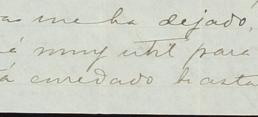 me ha dejado,
muy util para
enredado hasta